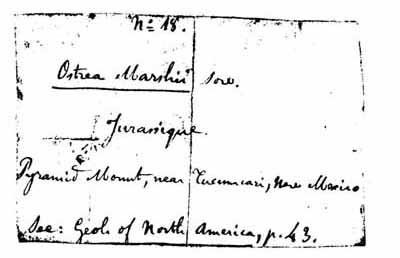 No 18.
Ostrea Marshii Sow.
Jurassique.
Pyramid Mount, near Tucumcari, New Mexico
See: Geol. of North America, p. 43.